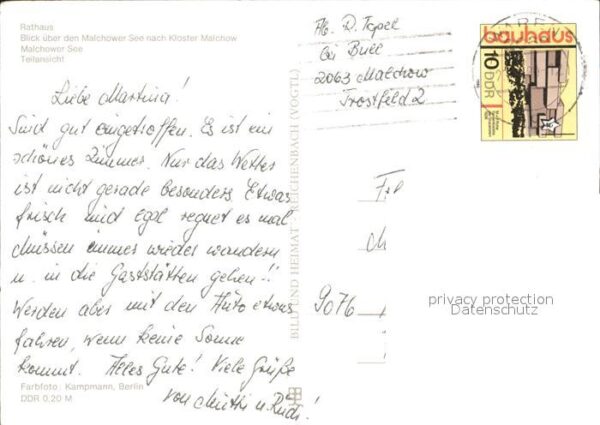 Rathaus
Blick über den Malchower See nach Kloster Malchow
Malchower See
Teilansicht
Liebe Martina!
Sind gut eingetroffen. Es ist ein
schönes Zimmer. Nur das Wetter
ist nicht gerade besonders. Etwas
frisch und egal regnet es mal
Müssen immer wieder wandern
u. in die Gaststätten gehen!!
Werden aber mit den Auto etwas
fahren, wenn keine Sonne
kommt. Alles Gute! Viele Grüße
von Mutti u Rudi!
Farbfoto: Kampmann, Berlin
DDR 0,20 M
BILD UND HEIMAT REICHENBACH (VOGTL)
Ab. R. Topel
bei Büll
2063 Malchow
Trostfeld 2
bauhaus
10 DDR
9076
privacy protection
Datenschutz